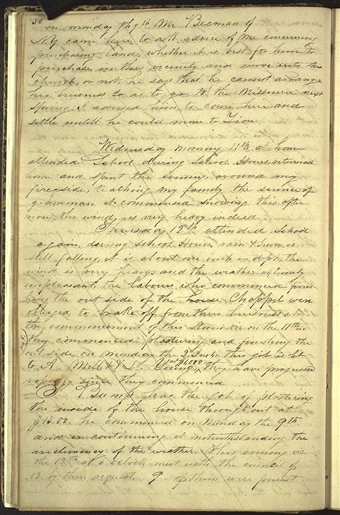 on monday the 9th Mr Beeman of
N.Y. came here to ask advice of me concerning
purchasing lands, whether it is best for him to
purchase in this vicinity and move into this
church, or not. he says that he cannot arrange
his business so as to go to the Missouri next
Spring. I advised him to come here and
settle until he could move to Zion.
Wednesday morning 11th at home
attended School during School Hours returned
home and spent the evening, around my
fireside, teaching my family the science of
grammar. It commenced snowing this after
noon, the wind is very heavy indeed
Thursday 12th attended School
again, during school Hours, rain & snow is
still falling, it is about one inch in depth, the
wind is very heavy and the weather extremely
unpleasant, the labour who commenced finish
ing the out side of the house Chappel were
obliged to brake off from their business at
the commencement of this storm on the 11th
They commenced plastering and finishing the
out side on monday the 2nd this job is let
to A. Millet & L. Young, at $1,000 they have progressed
rapidly since they commenced
J. Bump has the job of plastering
the inside of the house through out at
$1500. He commenced on Monday the 9th
and is continueing it notwithstanding the
inclemency of the weather. This evening viz
the 12th at 6 oclock meet with the council of
12 by their request, 9 of them were present